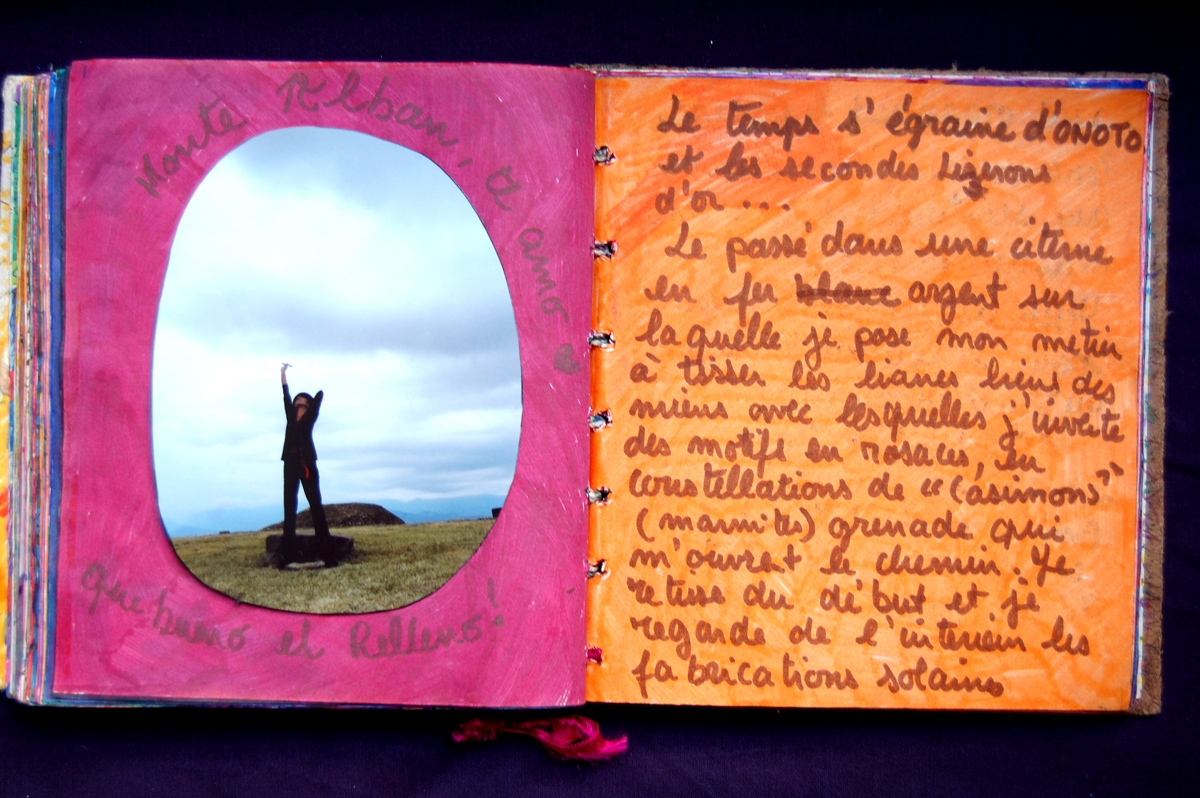 Monte Alban, te amo
que bueno el Relleno!
Le temps s'égraine d'ONOTO
et les secondes Lizerons
d'or ...
Le passé dans une citerne
en fer blanc argent sur
laquelle je pose mon metier
à tisser les lianes liens des
miens avec lesquelles j'invente
des motifs en rosaces, en
constellations de "Casimons"
(marmites) grenade qui
m'ouvrent le chemin. Je
retisse du début et je
regarde de l'interieur les
fabrications solaires